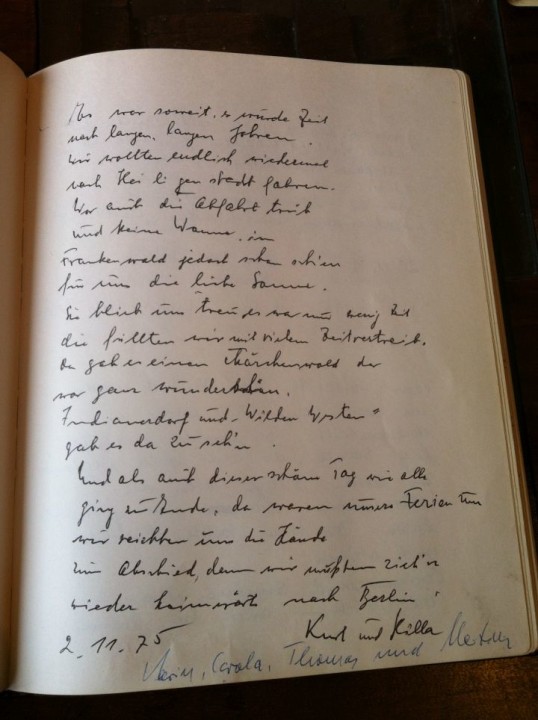 Es war soweit, es wurde Zeit
nach langen, langen Jahren.
Wir wollten endlich wiedermal
nach Hei li gen stadt fahren.
War auch die Abfahrt trüb
und keine Wonne, im
Frankenwald jedoch schon schien
für uns die liebe Sonne.
Sie blieb uns treu, es war nur wenig Zeit
die füllten wir mit vielem Zeitvertreib.
Da gab es einen Märchenwald der
war ganz wunderschön.
Indianerdorf und "Wilden Westen"
gab es da zu seh'n.
Und als auch dieser schöne Tag wie alle
ging zu Ende, da waren unsere Ferien um
wir reichten uns die Hände
zum Abschied, denn wir mußten zieh'n
wieder heimwärts nach Berlin!
2.11.75 Kurt und
Carola, Thomas und